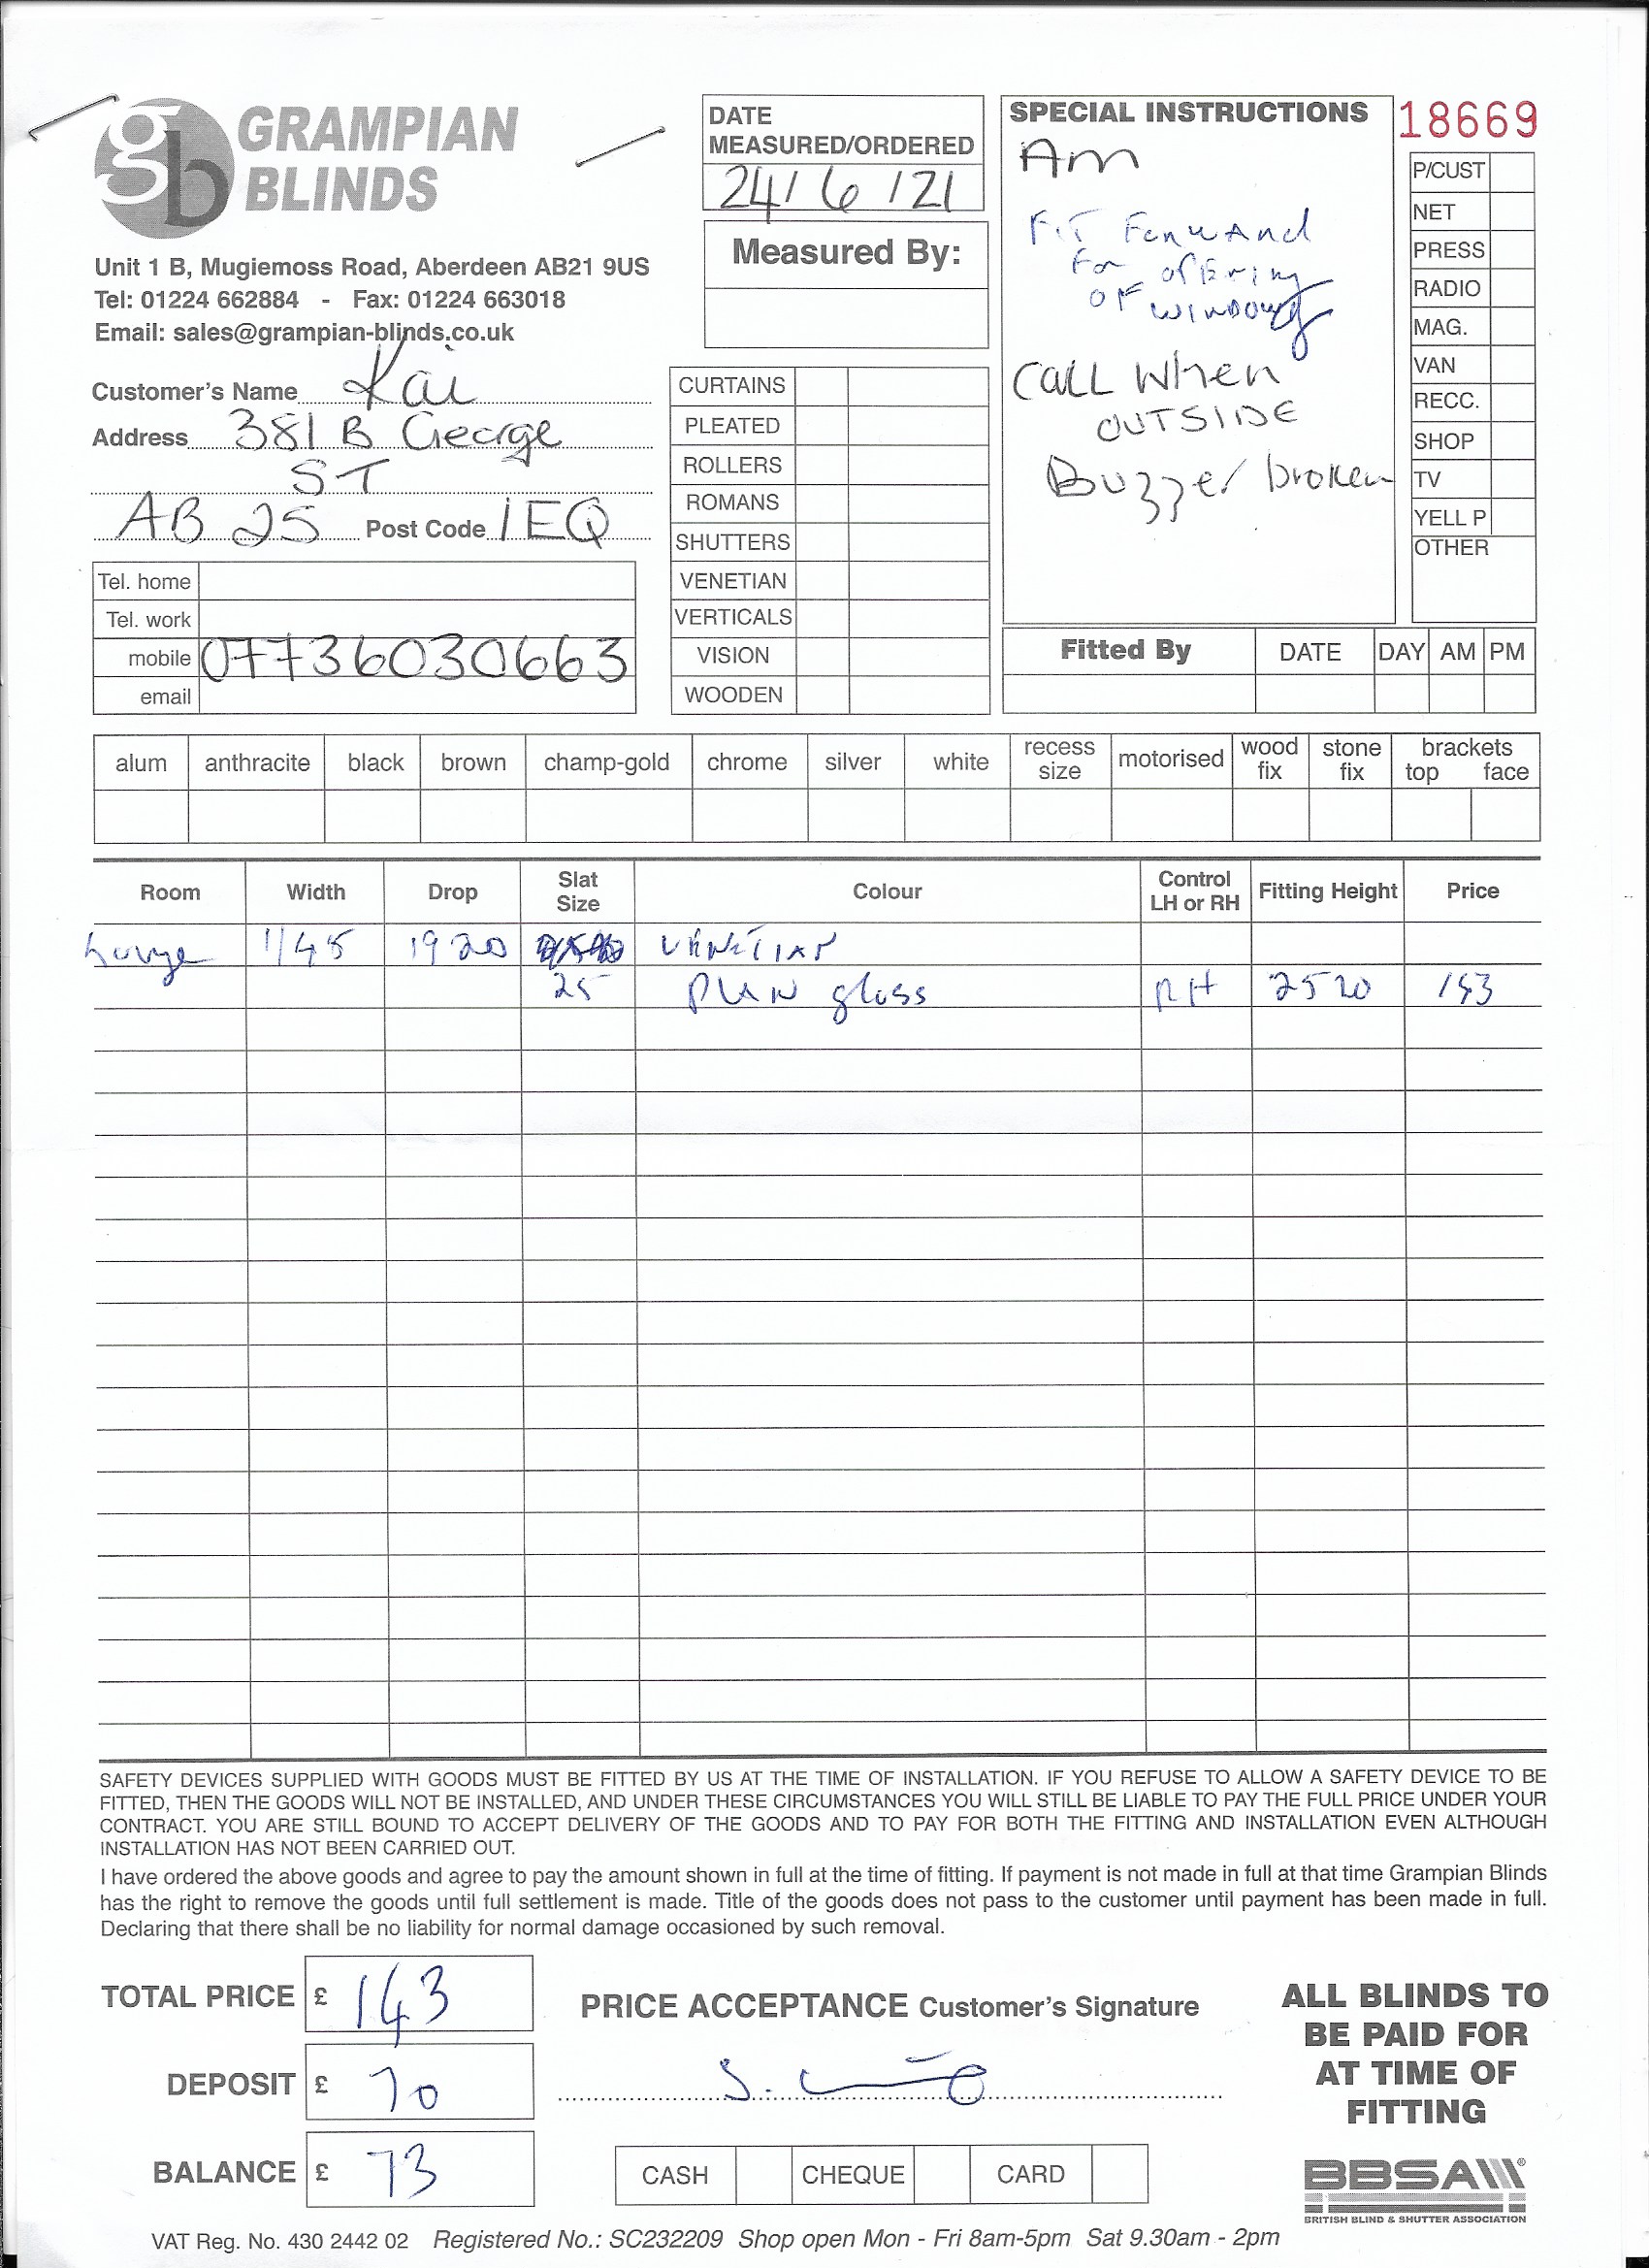 gb GRAMPIAN
BLINDS
Unit 1 B, Mugiemoss Road, Aberdeen AB21 9US
Tel: 01224 662884 - Fax: 01224 663018
Email: sales@grampian-blinds.co.uk
Customer's Name Kai
Address 381 B George
ST
AB 25 Post Code 1EQ
Tel. home
Tel. work
mobile 07736030663
email
DATE
MEASURED/ORDERED
24/6/21
Measured By:
CURTAINS
PLEATED
ROLLERS
ROMANS
SHUTTERS
VENETIAN
VERTICALS
VISION
WOODEN
SPECIAL INSTRUCTIONS
Am
FIT Forward
For opening
OF WINDOW
CALL When
OUTSIDE
Buzzer broken
18669
P/CUST
NET
PRESS
RADIO
MAG.
VAN
RECC.
SHOP
TV
YELL P
OTHER
Fitted By DATE DAY AM PM
alum anthracite black brown champ-gold chrome silver white recess size motorised wood fix stone fix brackets top face
Room Width Drop Slat Size Colour Control LH or RH Fitting Height Price
Lounge 1145 1920 VENETIAN
25 gloss RH 2520 143
SAFETY DEVICES SUPPLIED WITH GOODS MUST BE FITTED BY US AT THE TIME OF INSTALLATION. IF YOU REFUSE TO ALLOW A SAFETY DEVICE TO BE
FITTED, THEN THE GOODS WILL NOT BE INSTALLED, AND UNDER THESE CIRCUMSTANCES YOU WILL STILL BE LIABLE TO PAY THE FULL PRICE UNDER YOUR
CONTRACT. YOU ARE STILL BOUND TO ACCEPT DELIVERY OF THE GOODS AND TO PAY FOR BOTH THE FITTING AND INSTALLATION EVEN ALTHOUGH
INSTALLATION HAS NOT BEEN CARRIED OUT.
I have ordered the above goods and agree to pay the amount shown in full at the time of fitting. If payment is not made in full at that time Grampian Blinds
has the right to remove the goods until full settlement is made. Title of the goods does not pass to the customer until payment has been made in full.
Declaring that there shall be no liability for normal damage occasioned by such removal.
TOTAL PRICE £ 143
DEPOSIT £ 70
BALANCE £ 73
PRICE ACCEPTANCE Customer's Signature
CASH CHEQUE CARD
ALL BLINDS TO
BE PAID FOR
AT TIME OF
FITTING
BBSA
BRITISH BLIND & SHUTTER ASSOCIATION
VAT Reg. No. 430 2442 02 Registered No.: SC232209 Shop open Mon - Fri 8am-5pm Sat 9.30am - 2pm